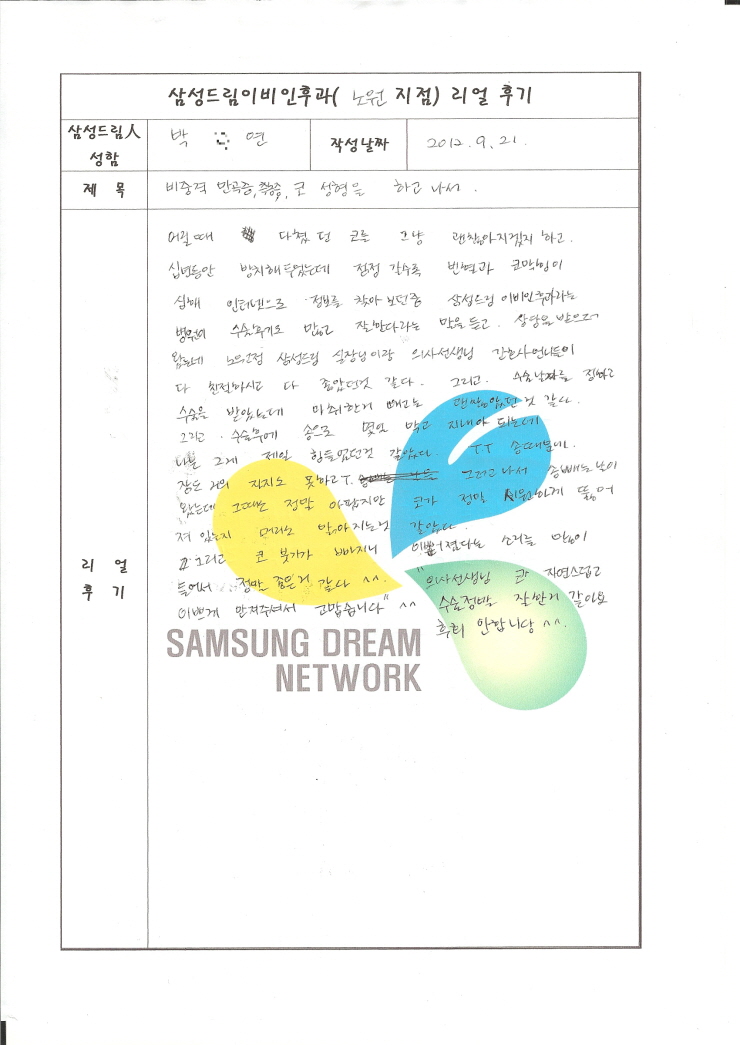 삼성드림이비인후과( 노원 지점) 리얼 후기
삼성드림人 성함
박 연
작성날짜
2012. 9. 21.
제 목
비중격 만곡증, 축농증, 코 성형을 하고 나서.
리 얼 후 기
어릴때 다쳤던 코를 그냥 괜찮아지겠지 하고.
십년동안 방치해 두었는데 점점 갈수록 변형과 코막힘이
심해 인터넷으로 정보를 찾아 보던중 삼성드림 이비인후과라는
병원이 수술후기도 많고 잘한다라는 말을 듣고. 상담을 받으러
왔는데 노원점 삼성드림 실장님이랑 의사선생님 간호사언니들이
다 친절하시고 다 좋았던것 같다. 그리고. 수술날짜를 정하고
수술을 받았는데 마취한거 빼고는 괜찮았던것 같다.
그리고. 수술후에 솜으로 몇일 막고 지내야 되는데
나는 그게 제일 힘들었던것 같았다. ㅜㅜ 솜때문에.
잠도 거의 자지도 못하고ㅜ. 그리고 나서 솜빼는 날이
왔는데 그때는 정말 아팠지만 코가 정말 시원하게 뚫어
져 있는지 머리도 맑아지는것 같았다.
그리고 코 붓기가 빠지니 이뻐졌다는 소리를 많이
들어서 정말 좋은거 같다 ^^. "의사선생님 코 자연스럽고
이쁘게 만져주셔서 고맙습니다" ^^ 수술정말 잘한거 같아요
후회 안합니당 ^^.
SAMSUNG DREAM
NETWORK